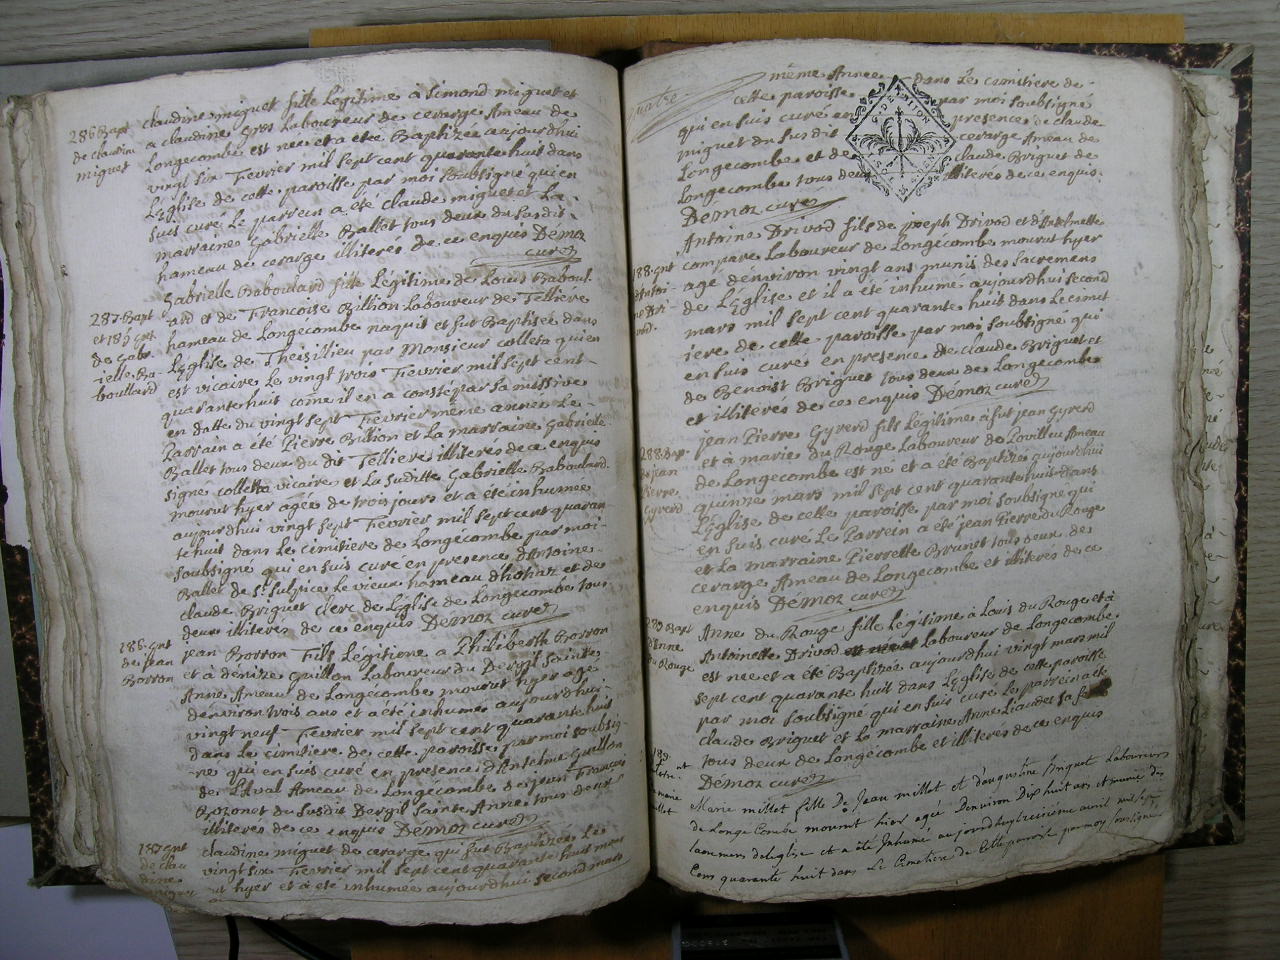 286 Bapt
de claudine
miguet
claudine miguet fille Legitime à Simond miguet et
a claudine Gros Laboureur de cerarge Ameau de
Longecombe est nee et a ete Baptizee aujourdhui
vingt six Fevrier mil sept cent quarante huit dans
L'Eglise de cette paroisse par moi soubsigne qui en
suis curé Le parrein a été claude miguet et La
marraine Gabrielle Ballet tous deux du susdit
hameau de cerarge illiteres de ce enquis Démoz
curé
287 Bapt
et 185 Ent
de Gabr-
ielle Ba-
boullard
Gabrielle Baboulard fille Legitime de Louis Baboul-
ard et de Francoise Billion Laboureur de Telliere
hameau de Longecombe naquit et fut Baptisée dans
L'Eglise de Thesillieu par Monsieur colleta qui en
est vicaire Le vingt trois Fievrier mil sept cent-
quarante huit come il en a consté par sa missive
en datte du vingt sept Fievrier même année Le-
Parrain a été Pierre Billion et La marraine Gabrielle
Ballet tous deux du dit Tellieres illiteres de ce enquis
signé colleta vicaire et La suditte Gabrielle Baboulard
mourut hyer agée de trois jours et a été inhumée
aujourdhui vingt sept Fievrier mil sept cent quaran
te huit dans Le cimitiere de Longecombe par moi-
soubsigné qui en suis curé en presence d'Antoine
Ballet de St Sulpice Le vieux hameau d'hotiaz et de
claude Briguet clerc de L'Eglise de Longecombe tous
deux illiteres de ce enquis Démoz curé
186 Ent
de jean
Borron
jean Borron Fils Legitime a Philiberth Borron
et à denize Guillon Laboureur du Dergil Sainte
Anne Ameau de Longecombe mourut hyer agé
denviron trois ans et a été inhumé aujourdhui-
vingt neuf Fevrier mil sept cent quarante huit
dans Le cimitiere de cette paroisse par moi soubsig-
né qui en suis curé en presence d'Antelme Guillon
de Laval Ameau de Longecombe et de jean François
Bozonet du susdit Dergil Sainte Anne tous deux
illiteres de ce enquis Démoz curé
187 Ent
de clau
dine
miguet
claudine miguet de cerarge qui fut Baptizée Le
vingt six Fievrier mil sept cent quarante huit mour
ut hyer et a été inhumée aujourdhui second mars
même Annee dans Le cimitiere de
cette paroisse par moi soubsigné
qui en suis curé en presence de claude
miguet du susdit cerarge Ameau de
Longecombe et de claude Briguet de
Longecombe tous deux illiteres de ce enquis
Démoz curé
188 Ent
d'Antoi-
ne Dri-
vod
Antoine Drivod fils de joseph Drivod et d'Antelmette
compare Laboureur de Longecombe mourut hyer
agé denviron vingt ans munis des Sacremens
de L'Eglise et il a été inhumé aujourdhui second
mars mil sept cent quarante huit dans Le cimit
iere de cette paroisse par moi soubsigné qui
en suis curé en presence de claude Briguet et
de Benoist Briguet tous deux de Longecombe
et illiterés de ce enquis Démoz curé
288 Bap
de jean
Pierre
Gyrerd
jean Pierre Gyrerd fils Legitime a fut jean Gyrerd
et à marie du Rouge Laboureur de Lovilleu Ameau
de Longecombe est né et a été Baptizé aujourdhui
quinze mars mil sept cent quarante huit dans
L'Eglise de cette paroisse par moi soubsigné qui
en suis curé Le Parrein a été jean Pierre du Rouge
et La marraine Pierrette Brunet tous deux de
cerarge Ameau de Longecombe et illiteres de ce
enquis Démoz curé
289 Bapt
d'Anne
du Rouge
Anne du Rouge fille Legitime à Louis du Rouge et à
Antoinette Drivod Laboureur de Longecombe
est nee et a été Baptizée aujourdhui vingt mars mil
sept cent quarante huit dans L'Eglise de cette paroisse
par moi soubsigné qui en suis curé Le parrein a été
claude Briguet et La marraine Anne Liaudet sa
tous deux de Longecombe et illiterés de ce enquis
Démoz curé
189
marie
Marie millet fille De Jean millet et d'augustine Briguet Laboureurs
de Longe Combe mourut hier agée Denviron Dix huit ans et munie des
sacremens de leglise et a été Inhumé aujourdhuy huitiéme avril mil sept
Cens quarante huit dans Le Cimetiere de Cette paroisse par moy soussigné